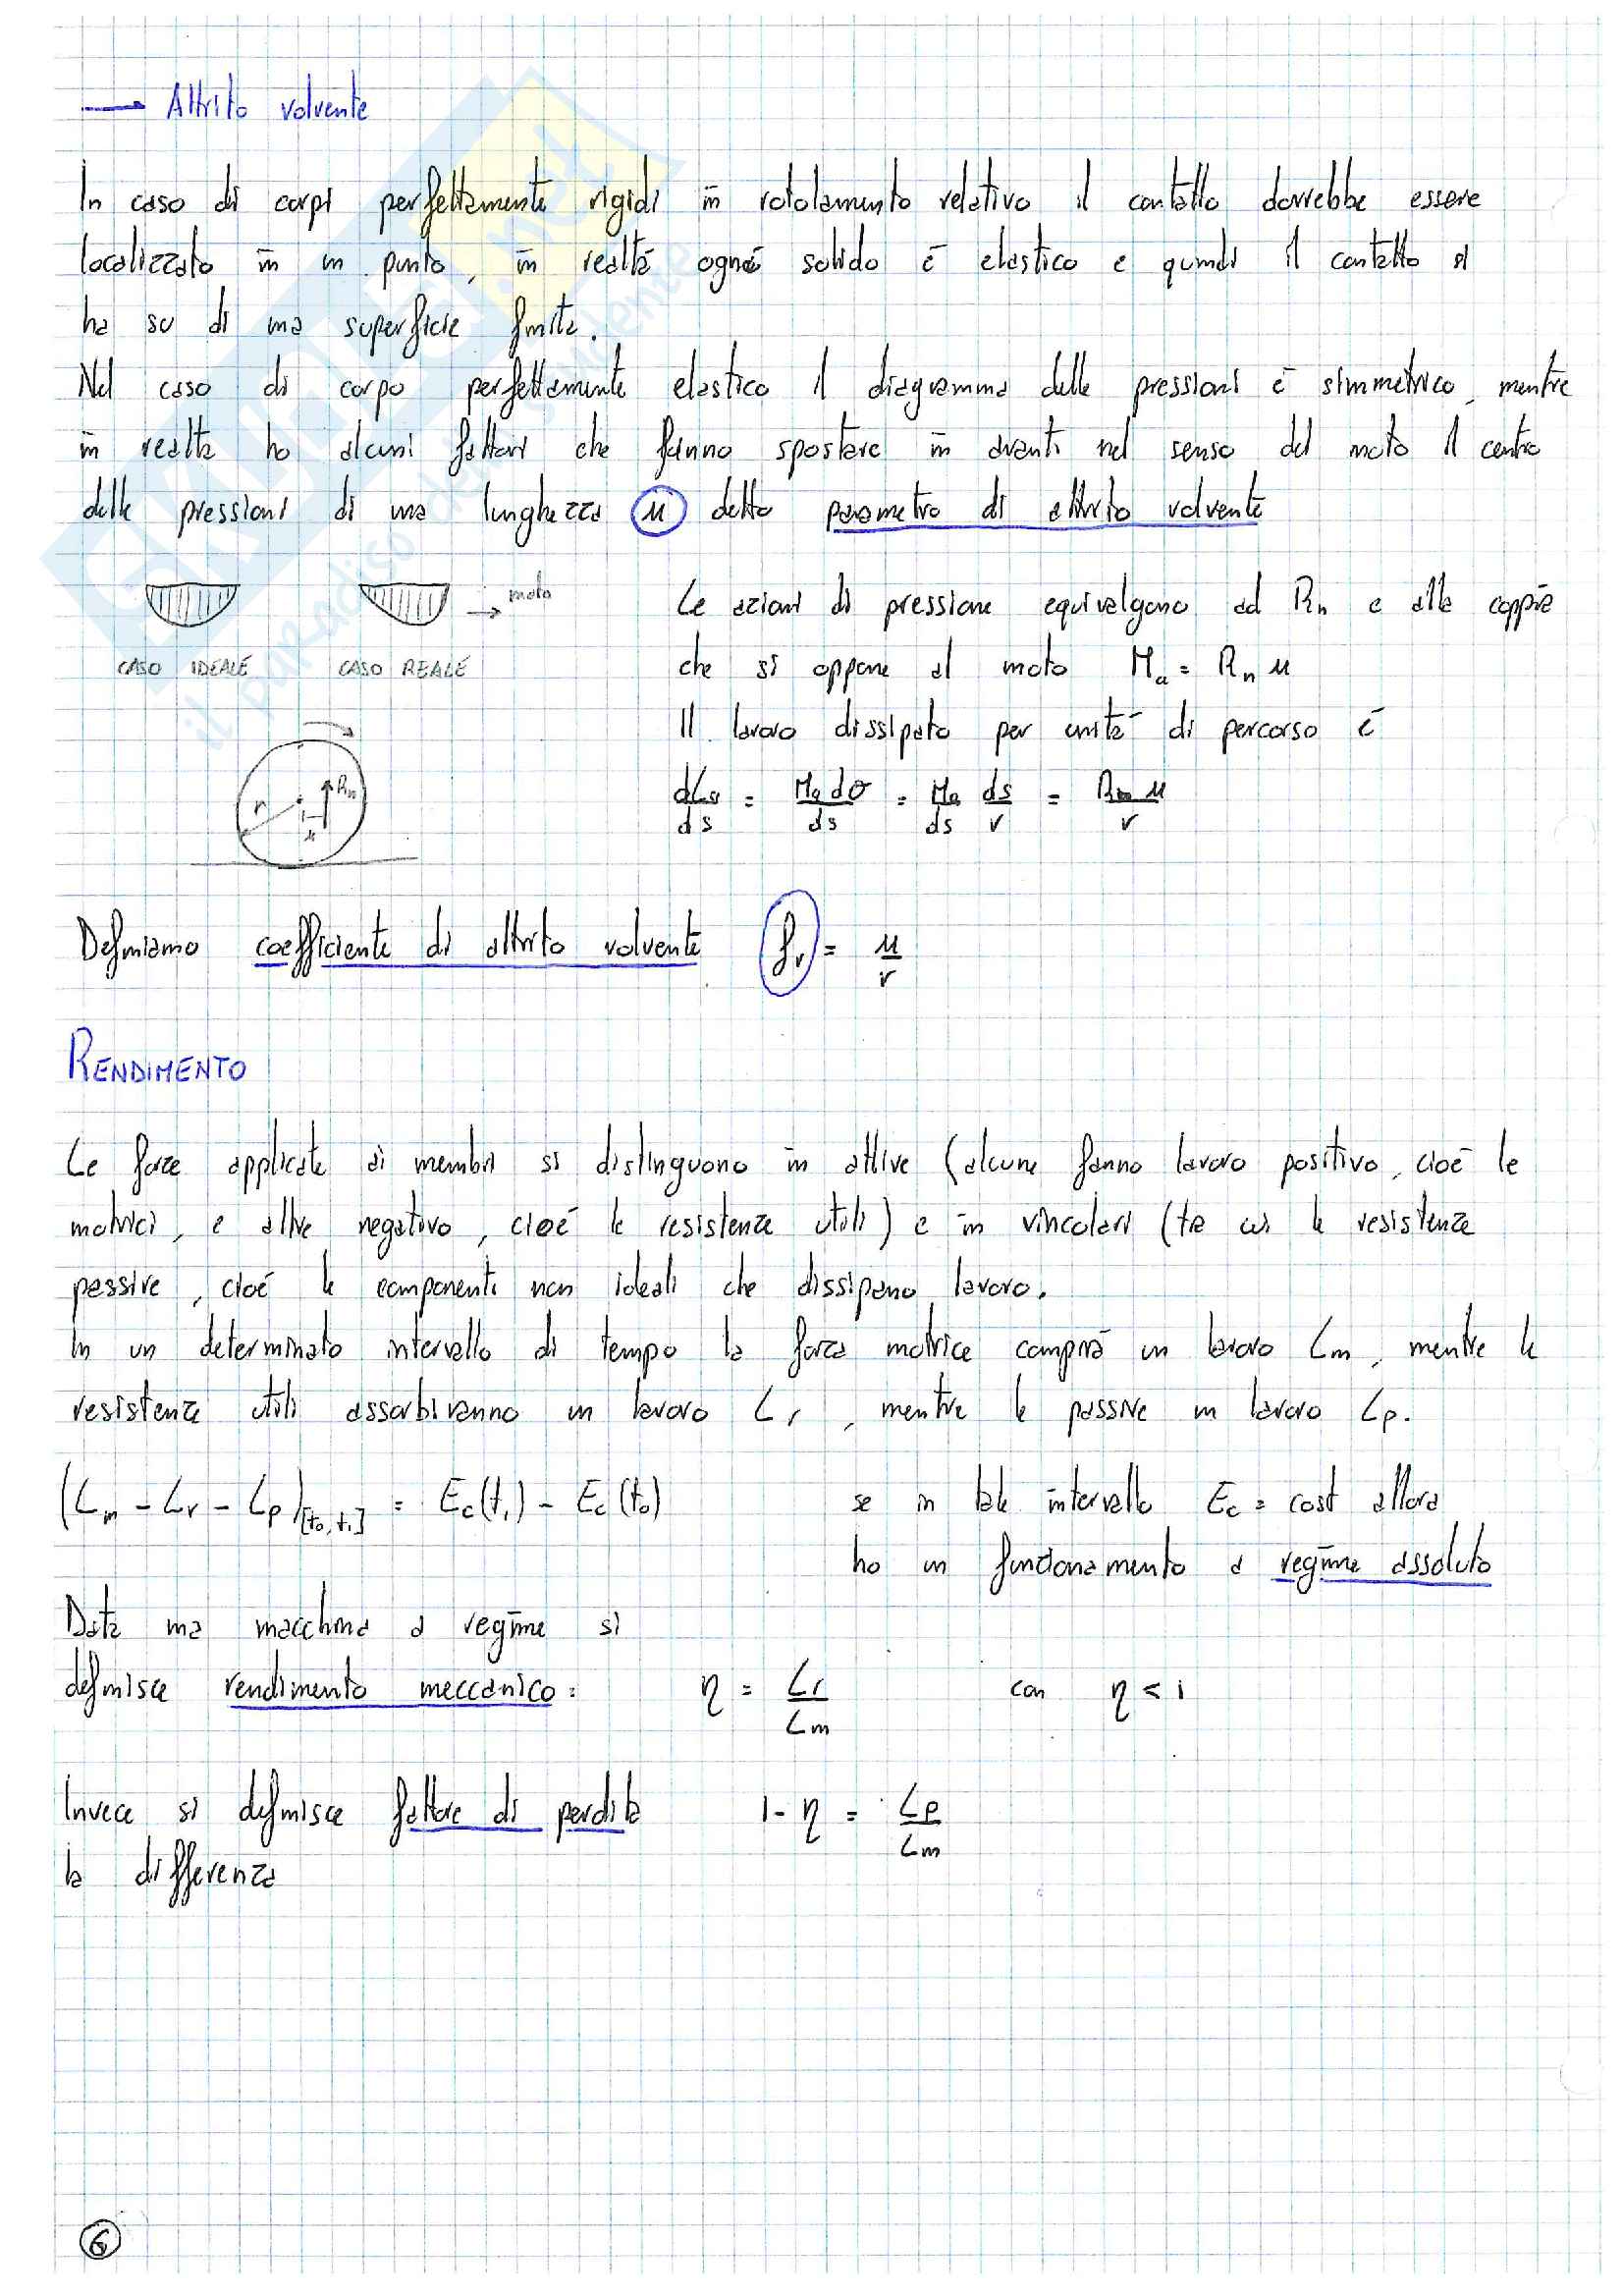 → Attrito volvente
In caso di corpi perfettamente rigidi in rotolamento relativo il contatto dovrebbe essere
localizzato in un punto, in realtà ogni solido è elastico e quindi il contatto si
ha su di una superficie finita.
Nel caso di corpo perfettamente elastico il diagramma delle pressioni è simmetrico, mentre
in realtà ho alcuni fattori che fanno spostare in avanti nel senso del moto il centro
delle pressioni di una lunghezza u detto parametro di attrito volvente
moto
CASO IDEALE CASO REALE
Le azioni di pressione equivalgono ad Rn e alla coppia
che si oppone al moto Ma = Rn u
Il lavoro dissipato per unità di percorso è
r Rn u
dLa/ds = Ma dθ/ds = Ma/ds ds/r = Rn u/r
Definiamo coefficiente di attrito volvente fv = u/r
RENDIMENTO
Le forze applicate ai membri si distinguono in attive (alcune fanno lavoro positivo, cioè le
motrici, e altre negativo, cioè le resistenze utili) e in vincolari (tra cui le resistenze
passive, cioè le componenti non ideali che dissipano lavoro.
In un determinato intervallo di tempo la forza motrice compirà un lavoro Lm, mentre le
resistenze utili assorbiranno un lavoro Lr, mentre le passive un lavoro Lp.
(Lm - Lr - Lp)[t0,t1] = Ec(t1) - Ec(t0) se in tale intervallo Ec = cost allora
ho un funzionamento a regime assoluto
Data una macchina a regime si
definisce rendimento meccanico: η = Lr/Lm con η < 1
Invece si definisce fattore di perdita 1 - η = Lp/Lm
la differenza
6